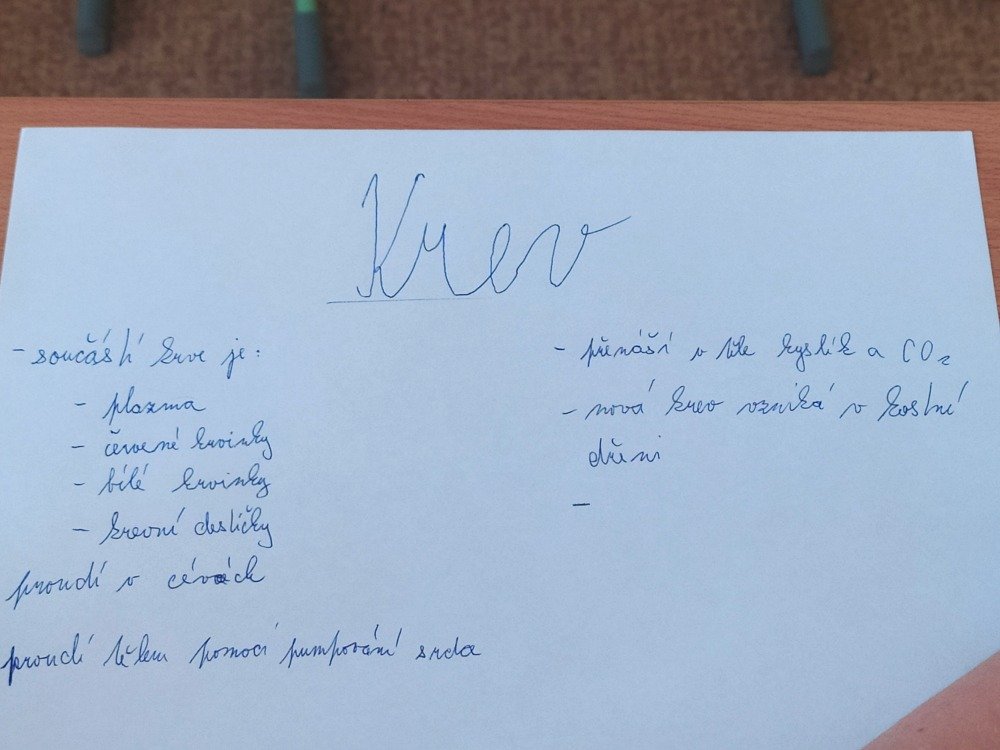 Krev
- součástí krve je:
- plazma
- červené krvinky
- bílé krvinky
- krevní destičky
proudí v cévách
proudí tělem pomocí pumpování srdce
- přenáší v těle kyslík a CO₂
- nová krev vzniká v kostní
dřeni
-